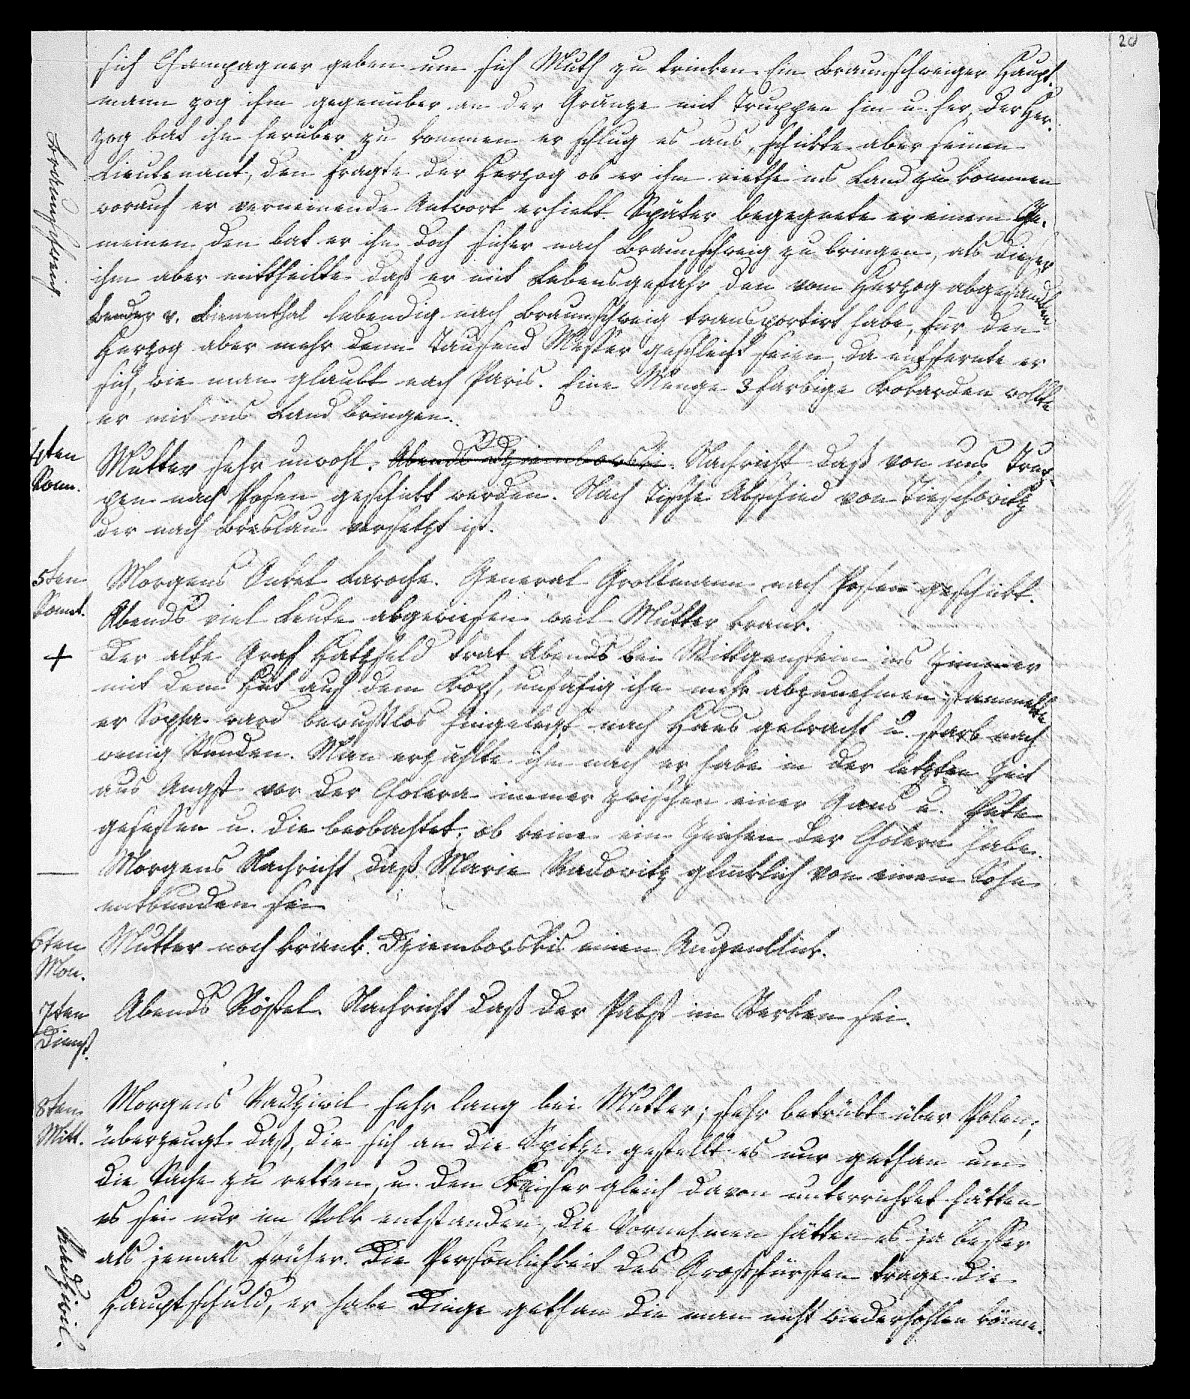 20
sich Champagner geben um sich Muth zu trinken. Ein Braunschweiger Haupt-
mann zog ihm gegenüber an der Gränze mit Truppen hin u. her, der Her-
zog bat ihn herüber zu kommen er schlug es aus, schikte aber seinen
Lieutenant, den fragte der Herzog ob er ihm riethe ins Land zu kommen
worauf er verneinende Antwort erhielt. Später begegnete er einem Ge-
meinen den bat er ihn doch sicher nach Braunschweig zu bringen, als dieser
ihm aber mittheilte daß er mit Lebensgefahr den vom Herzog abgesandten
Bender v. Bienenthal lebendig nach Braunschweig transportirt habe, für den
Herzog aber mehr denn Tausend Messer geschleift seien, da entfernte er
sich, wie man glaubt nach Paris. Eine Menge 3 farbige Kokarden wollte
er mit ins Land bringen.
Braunschweig.
4ten Sonn.
Mutter sehr unwohl. Abends Dziembowski. Nachricht daß von uns Trup-
pen nach Posen geschikt werden. Nach Tische Abschied von
der nach Breslau versetzt ist.
5ten Sonnt.
Morgens Onkel Laroche. General Grollmann nach Posen geschikt.
Abends viel Leute abgewiesen weil Mutter krank.
+
Der alte Graf Hatzfeld trat Abends bei Wittgenstein ins Zimmer
mit dem Hut auf dem Kopf, unfähig ihn mehr abzunehmen; stammelte
er Sopha ward bewußtlos hingelegt nach Haus gebracht u. starb nach
wenig Stunden. Man erzählte ihm nach er habe in der letzten Zeit
aus Angst vor der Cholera immer zwischen einer Gans u. Pute
gesessen u. die beobachtet, ob keine ein Zeichen der Cholera habe.
—
Morgens Nachricht, daß Marie Radowitz glücklich von einem Sohn
entbunden sei
6ten Mon.
Mutter noch krank. Dziembowskis einen Augenblick.
7ten Dienst.
Abends Rößel. Nachricht daß der Pabst im Sterben sei.
8ten Mitt.
Morgens Radziwil sehr lang bei Mutter; sehr betrübt über Polen;
überzeugt daß, die sich an die Spitze gestellt es nur gethan um
die Sache zu retten, u. den Kaiser gleich davon unterrichtet hätten
es sei nur im Volk entstanden, die Vornehmen hätten es ja besser
als jemals früher. Die Persönlichkeit des Großfürsten trage die
Hauptschuld, er habe Dinge gethan die man nicht wiederhohlen könne.
Radziwil.